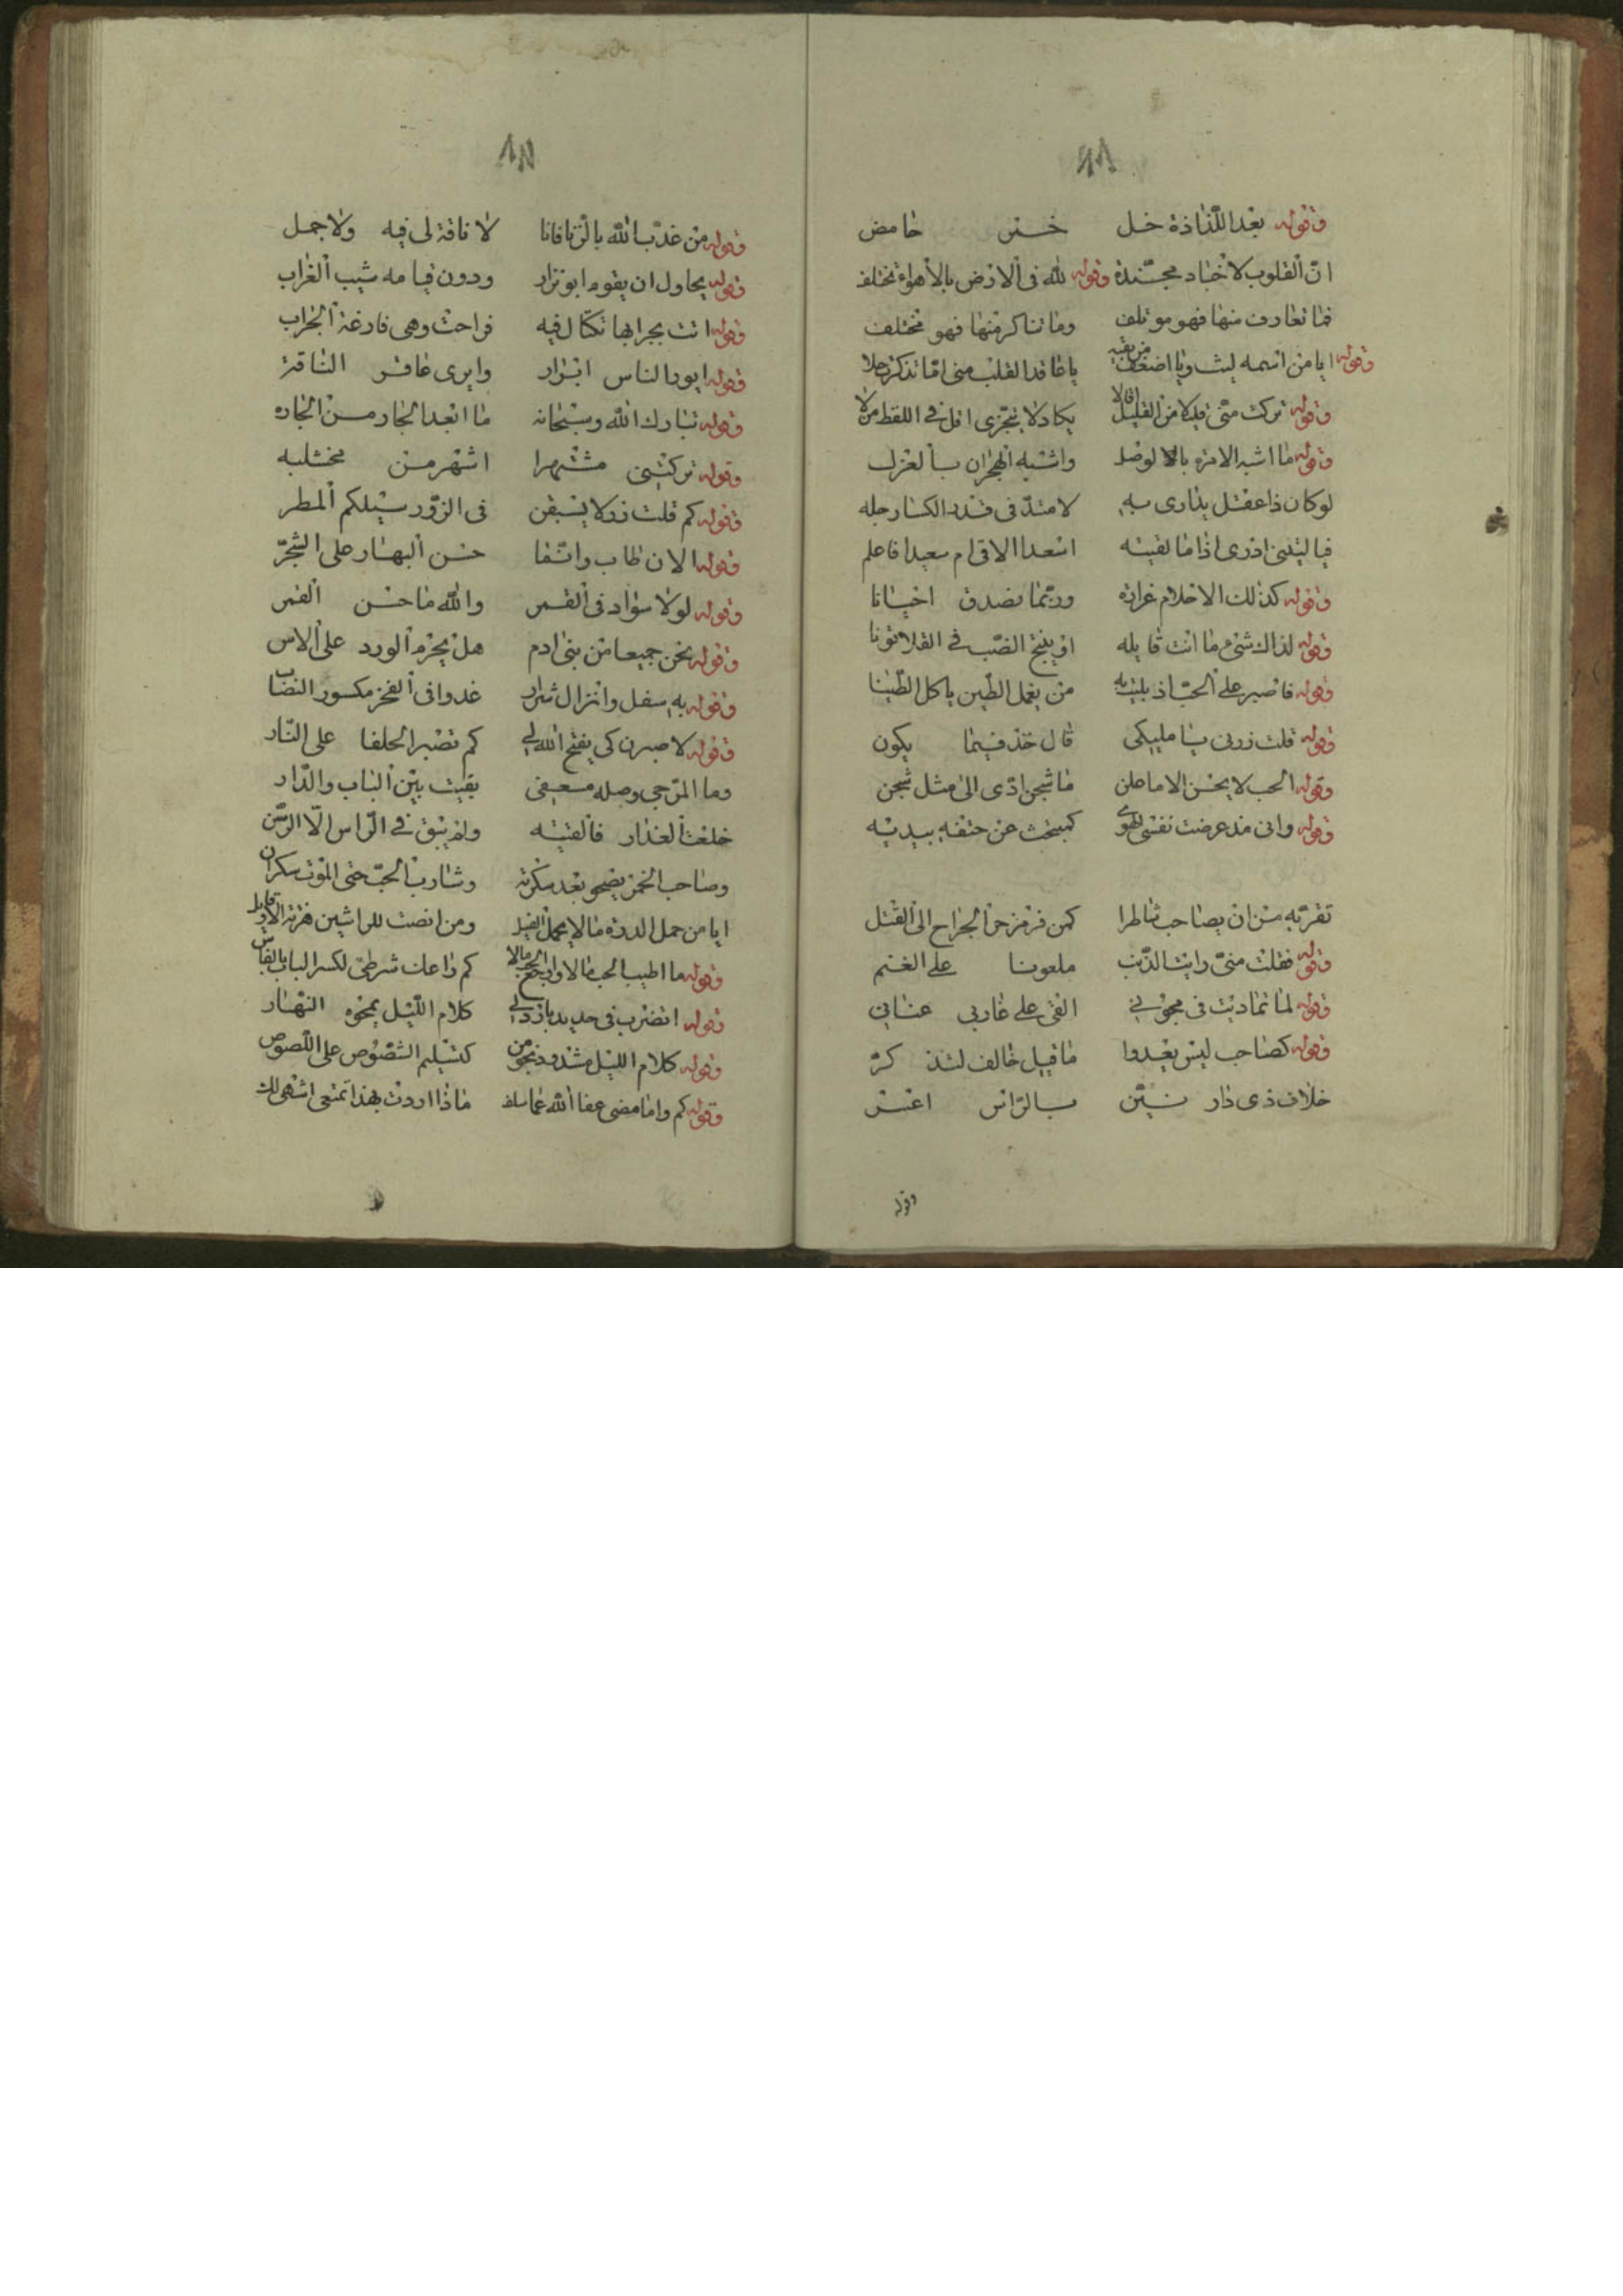 وقوله بعد اللذاذة خل خمر حامض
ان القلوب لاجناد مجندة وقوله لله فى الارض بالاهواء تختلف
فما تعارف منها فهو موتلف وما تناكر منها فهو مختلف
وقوله ايا من اسمه ليث ويا اضعف من بقه يا عاقد القلب منى اما تذكرت حلا
وقوله تركت منى قليلا من القليل اقلا يكاد لا يتجزى اقل فى اللفظ من لا
وقوله ما اشبه الامرة بالوصل واشبه الهجران بالعزل
لو كان ذا عقل يدارى به لامتد فى قدر الكسا رجله
فيا ليتنى ادرى اذا ما لقيته اسعد الاقى ام سعيدا فاعلم
وقوله كذلك الاحلام غرارة وربما تصدق احيانا
وقوله لذاك شئ ما انت قايله او ينتج الضب فى الفلا نونا
وقوله فاصبر على الحب اذ بليت به من يعمل الطين ياكل الطينا
وقوله قلت زرنى يا مليكى قال خذ فيما يكون
وقوله الحب لا يحسن الا ما علن ما شجن ادى الى مثل شجن
وقوله وانى مذ عرضت نفسى للهوى كمبحث عن حتفه بيديه
تفر به من ان يصاحب شاطرا كمن فر من حر الجراح الى القتل
وقوله فقلت منى رايت الذئب ملعونا على الغنم
وقوله لما تماديت فى مجونى القى على غاربى عنانى
وقوله كصاحب ليس يعدوا ما قيل خالف لتذكر
خلاف ذى دار بين بالراس اعنى
وقوله
وقوله من عذب الله بالزنا فانا لا ناقة لى فيه ولا جمل
وقوله يحاول ان يقوم ابو نزار ودون قيامه شيب الغراب
وقوله اتت بجرابها تكتال فيه فراحت وهى فارغة الجراب
وقوله ابور الناس ابرار وايرى عاقر الناقة
وقوله تبارك الله وسبحانه ما ابعد الجار من الجاره
وقوله تركتنى مشتهرا اشهر من مخشلبه
وقوله كم قلت زر لا يسبقن فى الزور سيلكم المطر
وقوله الان طاب وانما حسن البهار على الشجر
وقوله لولا سواد فى القمر والله ما حسن القمر
وقوله نحن جميعا من بنى ادم هل يحرم الورد على الاس
وقوله به سفل وانزال شرار غدوا فى الفخر مكسور النصاب
وقوله لاصبرن كى يفتح الله لى كم تصبر الحلفا على النار
وما المرجى وصله مسعفى بقيت بين الباب والدار
خلعت العذار فالقيته ولم يبق فى الراس الا الرسن
وصاحب الخمر يصحو بعد سكرته وشارب الحب حتى الموت سكران
ايا من حمل الذرة ما لا يحمل الفيل ومن انصت للواشين
وقوله ما اطيب الحب كم ذا عات شرطى لكسر الباب بالفاس
وقوله اتضرب فى حديد بارد لى كلام الليل يمحوه النهار
وقوله كلام الليل كتسليم الشصوص على اللصوص
وقوله كم واما مضى عفا الله عما سلف ماذا اردت بهذا تمنعى اشهى لك